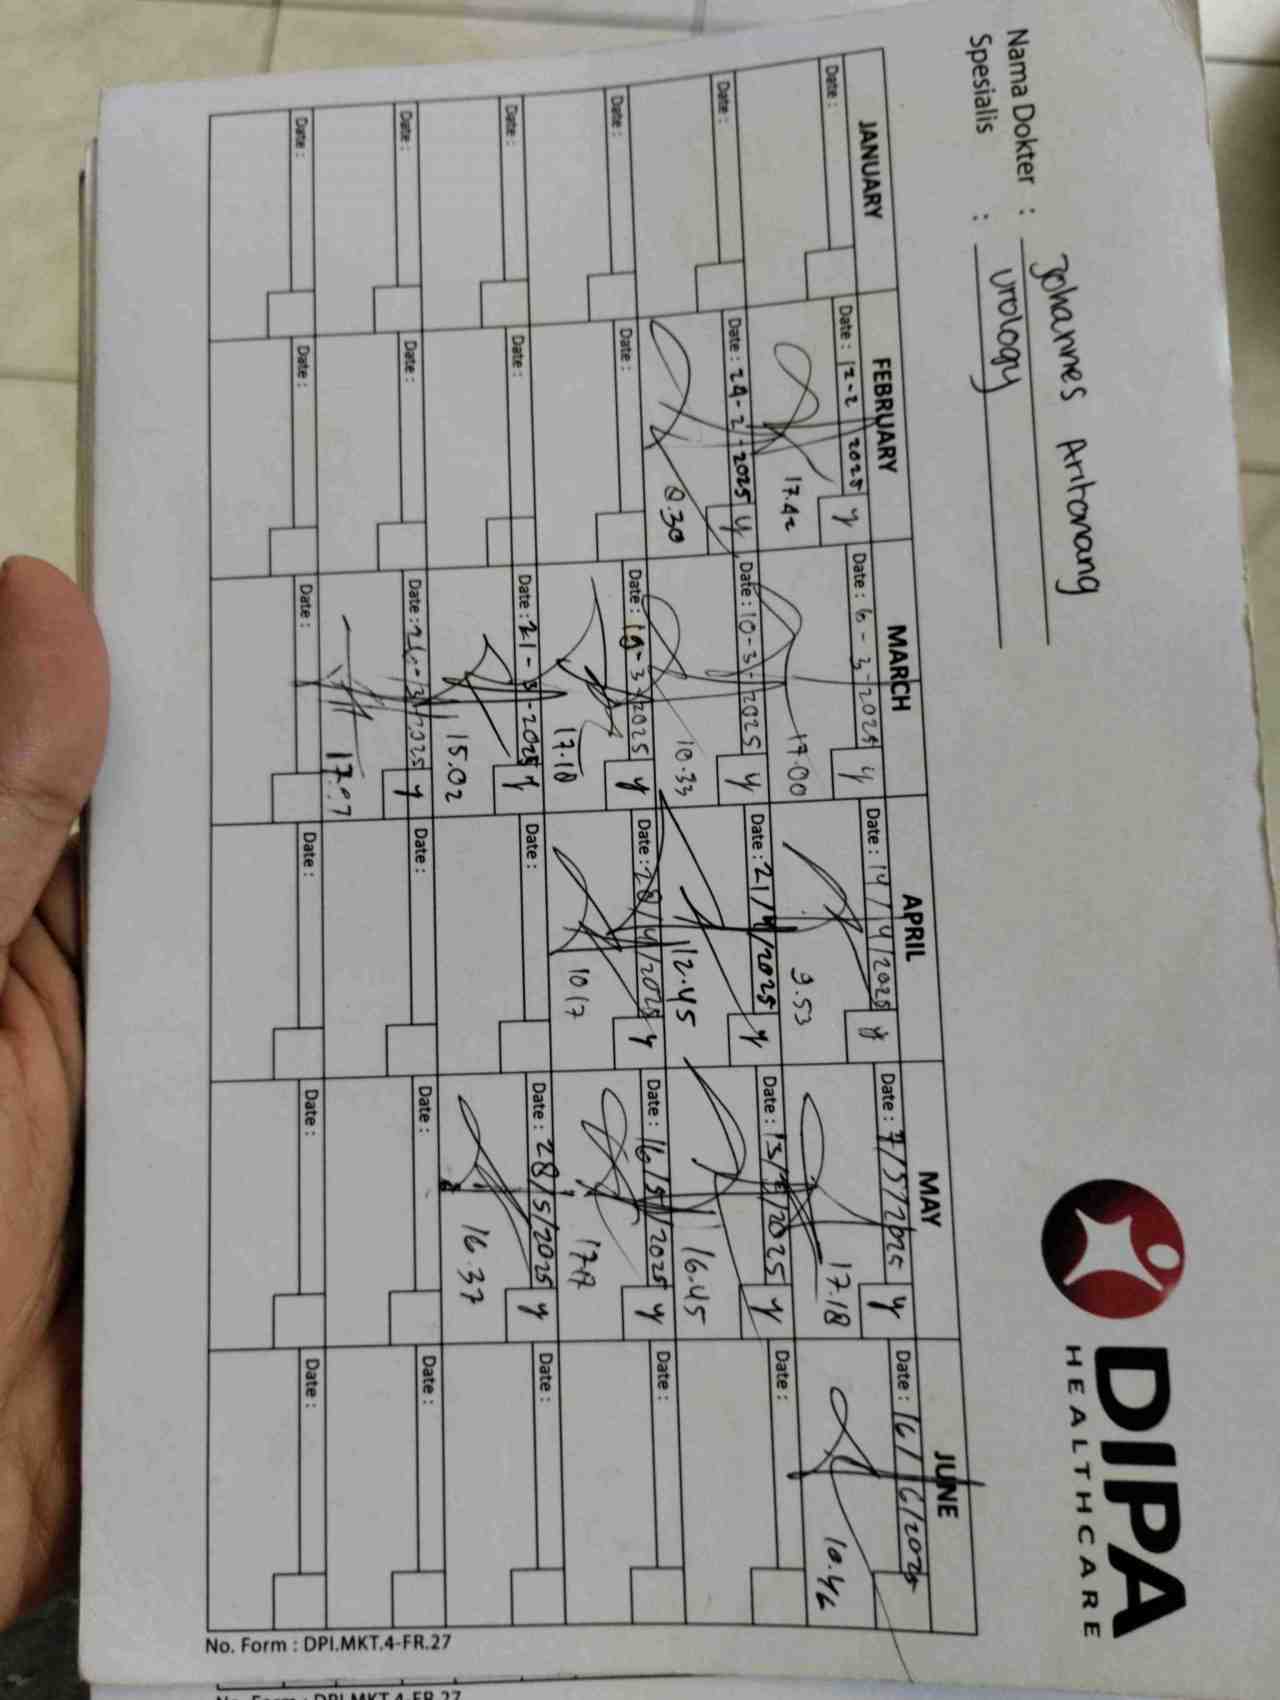 Nama Dokter : Johannes Aritonang
Spesialis : Urology
DIPA
HEALTHCARE
JANUARY FEBRUARY MARCH APRIL MAY JUNE
Date : Date : 12-2 2025 y Date : 6-3-2025 y Date : 14/4/2025 y Date : 7/5/2025 y Date : 16/6/2025
17.42 17.00 9.53 17.18 10.46
Date : Date : 24-2-2025 y Date : 10-3-2025 y Date : 21/4/2025 y Date : 13/5/2025 y Date :
8.30 10.33 12.45 16.45
Date : Date : Date : 19-3-2025 y Date : 28/4/2025 y Date : 16/5/2025 y Date :
17.18 10 17
Date : Date : Date : 21-3-2025 y Date : Date : 28/5/2025 y Date :
15.02 16.37
Date : Date : Date : 26-3-2025 y Date : Date : Date :
Date : Date : Date : Date : Date : Date :
No. Form : DPI.MKT.4-FR.27
No. Form : DPI.MKT.4-FR.27